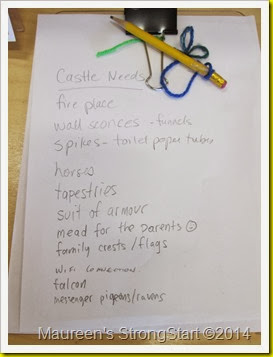 Castle Needs
fire place
wall sconces - funnels
spikes - toilet paper tubes
horses
tapestries
suit of armour
mead for the parents ☺
family crests/flags
wifi connection
falcon
messenger pigeons/ravens
Maureen's StrongStart ©2014